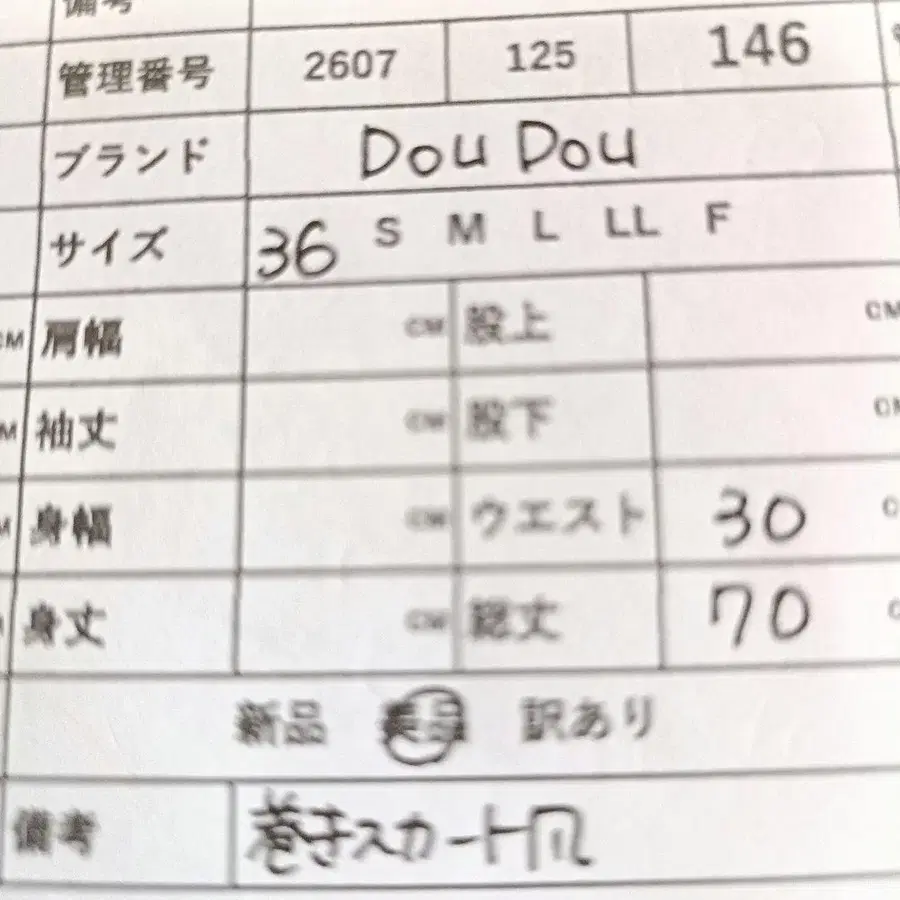 備考
管理番号 2607 125 146
ブランド Dou Dou
サイズ 36 S M L LL F
CM 肩幅 CM 股上 CM
M 袖丈 CM 股下 CM
M 身幅 CM ウエスト 30 C
身丈 CM 総丈 70 C
新品 美品 訳あり
備考 巻きスカート風